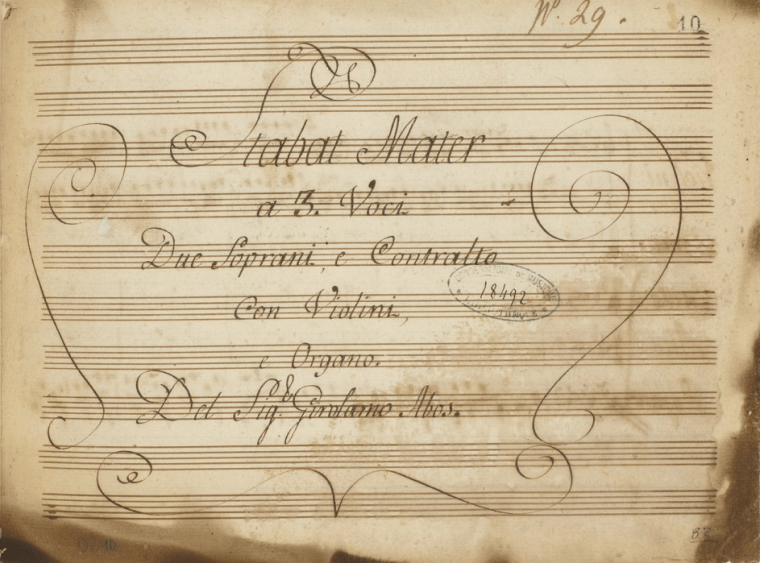 No. 29.
10
Stabat Mater
a 3. Voci
Due Soprani, e Contralto
Con Violini,
e Organo.
Del Sigr. Girolamo Abos.
18492